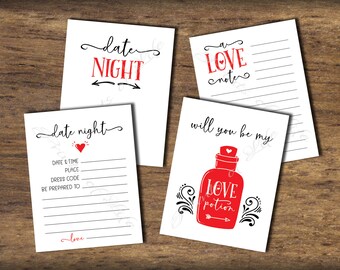 date
NIGHT
a
LOVE
note
date night
DATE & TIME
PLACE
DRESS CODE
BE PREPARED TO
love,
will you be my
LOVE
potion